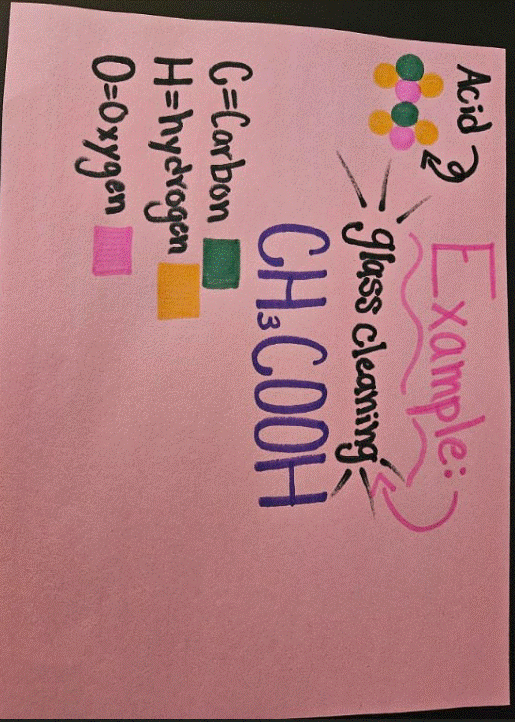 Acid
Example:
glass cleaning
CH₃COOH
C=Carbon
H=hydrogen
O=Oxygen